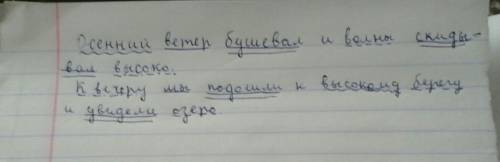 Осенний ветер бушевал и волны скиды-
вал высоко.
К вечеру мы подошли к высокому берегу
и увидели озеро.